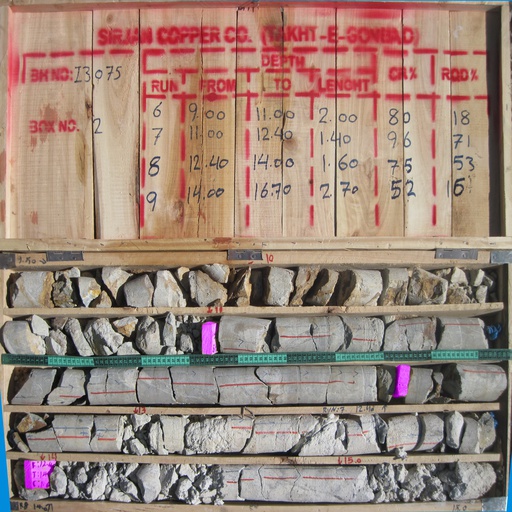 SIRJAN COPPER CO. (TAKHT-E-GONBAD)
BH NO: I3 075
DEPTH
RUN FROM TO LENGHT CR% RQD%
BOX NO. 2
6 9.00 11.00 2.00 80 18
7 11.00 12.40 1.40 96 71
8 12.40 14.00 1.60 75 53
9 14.00 16.70 2.70 52 15
10